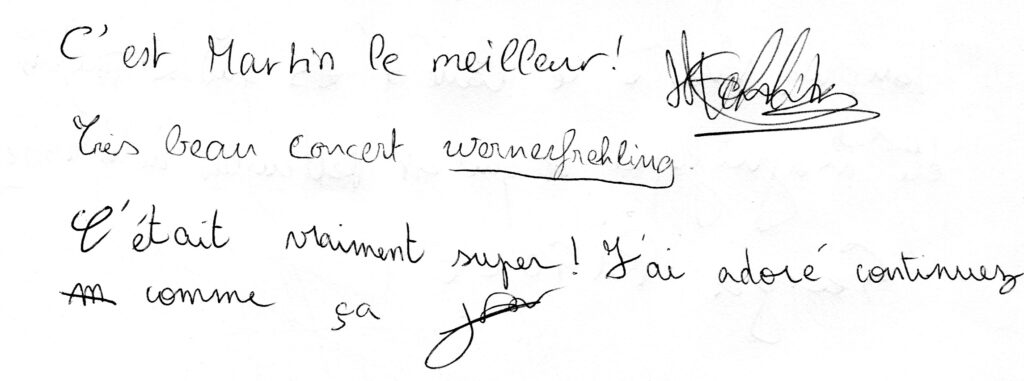 C'est Martin le meilleur!
Très beau concert wernerfrehling.
C'était vraiment super! J'ai adoré continuez
comme ça